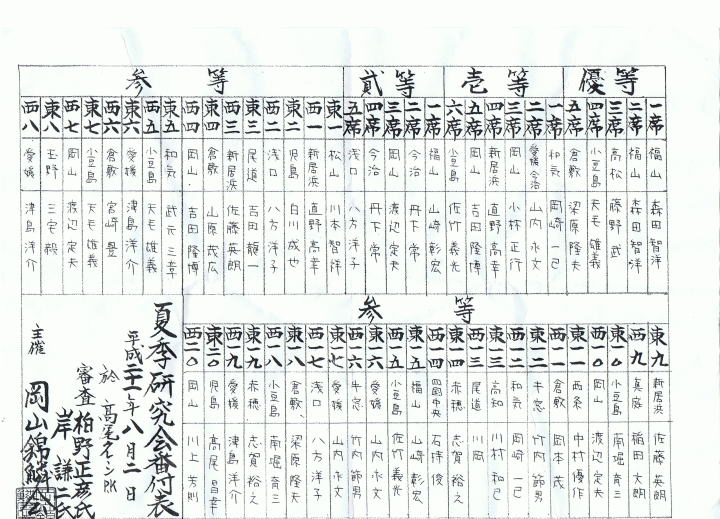 優等
一席 福山 森田智洋
二席 福山 森田智洋
三席 高松 藤野武
四席 小豆島 天毛雄義
五席 倉敷 梁原隆夫
壱等
一席 和気 岡崎一己
二席 愛媛今治 山内永文
三席 岡山 小林正行
四席 新居浜 直野高幸
五席 岡山 吉田隆博
六席 小豆島 佐竹義光
貮等
一席 福山 山崎彰宏
二席 今治 丹下常
三席 岡山 渡辺定夫
四席 今治 丹下常
五席 浅口 八方洋子
参等
東一 松山 川本智洋
西一 新居浜 直野高幸
東二 児島 白川成也
西二 浅口 八方洋子
東三 尾道 吉田龍一
西三 新居浜 佐藤英朗
東四 倉敷 山原茂広
西四 岡山 吉田隆博
東五 和気 武元三章
西五 小豆島 天毛雄義
東六 愛媛 津島洋介
西六 倉敷 宮崎昱
東七 小豆島 天毛雄義
西七 岡山 渡辺定夫
東八 玉野 三宅毅
西八 愛媛 津島洋介
参等
東九 新居浜 佐藤英朗
西九 真庭 稲田大朗
東一0 小豆島 南堀育三
西一0 岡山 渡辺定夫
東一一 西条 中村優作
西一一 倉敷 岡本茂
東一二 牛窓 竹内節男
西一二 和気 岡崎一己
東一三 高知 川村和己
西一三 尾道 川岡
東一四 赤穂 志賀裕之
西一四 四国中央 石村俊
東一五 福山 山崎彰宏
西一五 小豆島 佐竹義光
東一六 愛媛 山内永文
西一六 牛窓 竹内節男
東一七 愛媛 山内永文
西一七 浅口 八方洋子
東一八 倉敷 梁原隆夫
西一八 小豆島 南堀育三
東一九 赤穂 志賀裕之
西一九 愛媛 津島洋介
東二0 児島 高尾昌幸
西二0 岡山 川上芳則
夏季研究会番付表
平成二十一年八月二日
於 高尾インPK
審査 柏野正彦氏
岸謙二氏
主催 岡山錦鱗会